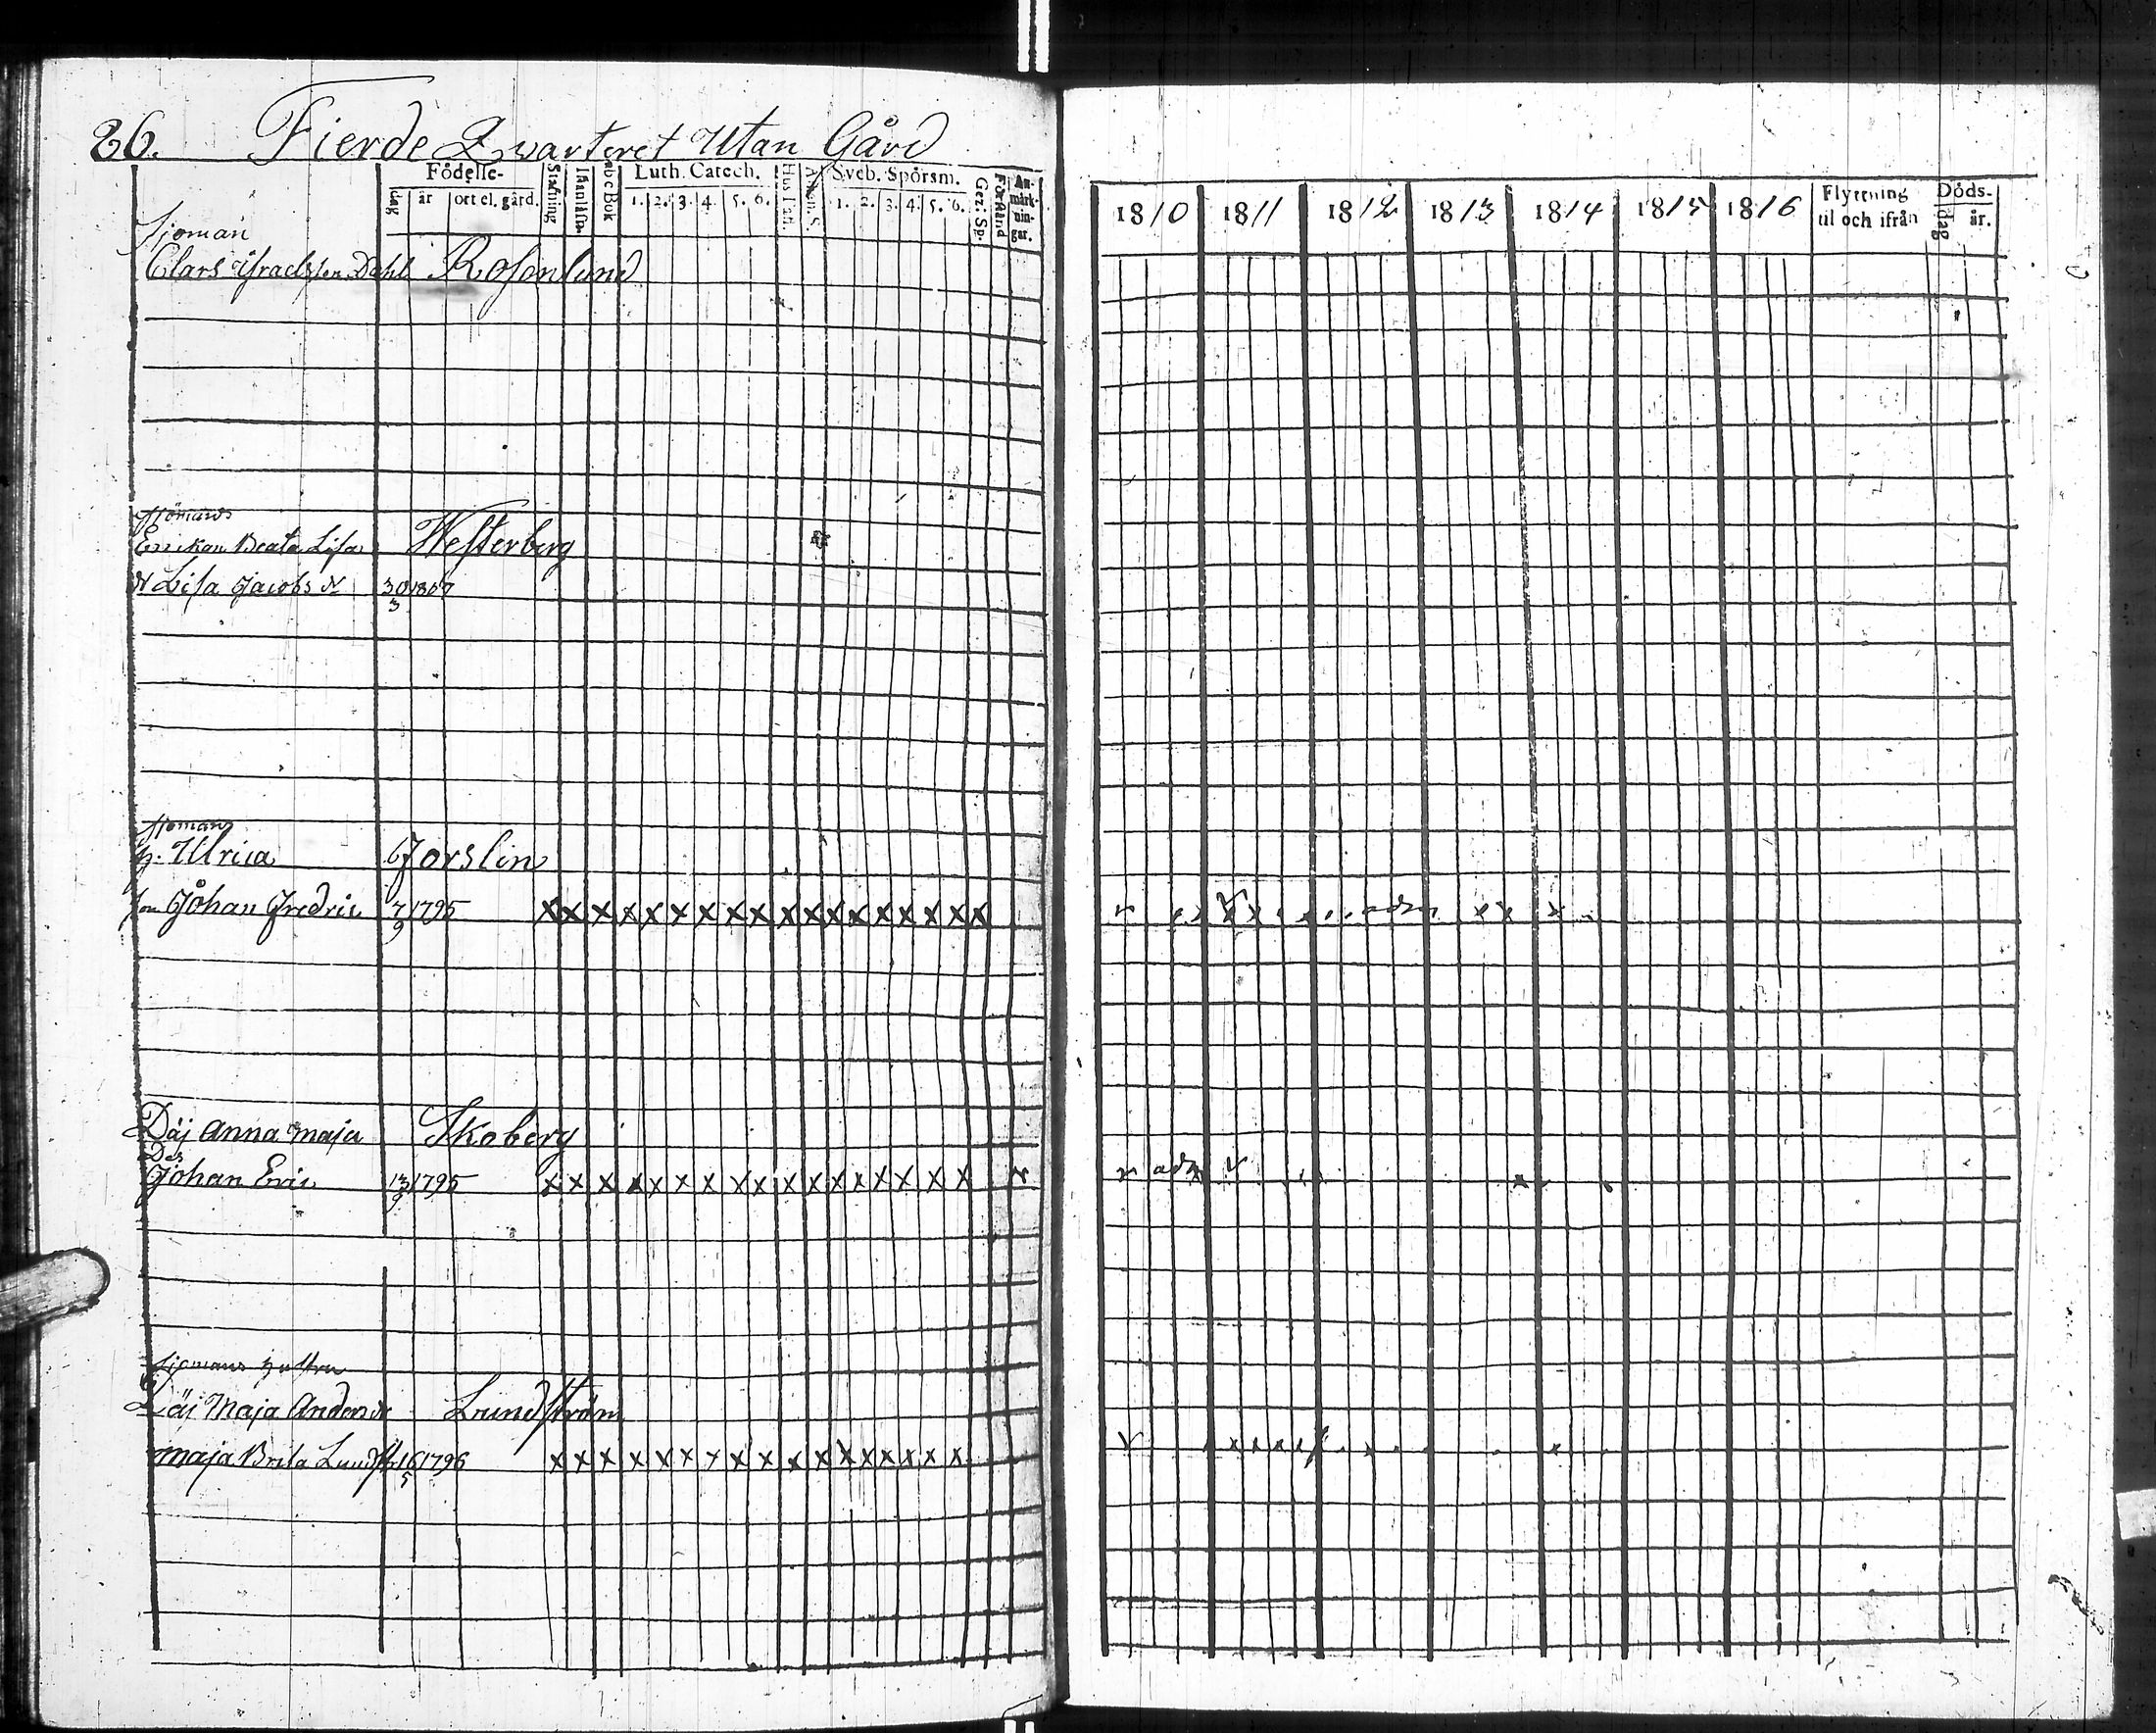 26. Fierde Qvarteret Utan Gård
Födelse- Stafning Abc Bok Luth. Catech. Hus Taf. Athan. S. Sveb. Spörsm. Gez: Sp. Förstånd An-
dag år ort el. gård. 1. 2. 3. 4. 5. 6. 1. 2. 3. 4. 5. 6. märk-
nin-
gar.
Sjöman
Clars Israelsson Dahl Rosenlund
Sjömans
Enckan Beata Lisa Westerberg
Lisa Jacobs dr 30/3 1807
Sjömans
h. Ulrica Forslin
son Johan Fredric 7/9 1795 x x x x x x x x x x x x x x x x x x
Däj Anna Maja Skoberg
Johan Eric 13/9 1795 x x x x x x x x x x x x x x x x x
Sjömans Hustru
Däj Maja Anders dr Lundström
Maja Brita Lundstr 16/5 1796 x x x x x x x x x x x x x x x x x
1810 1811 1812 1813 1814 1815 1816 Flyttning Döds-
til och ifrån dag år.